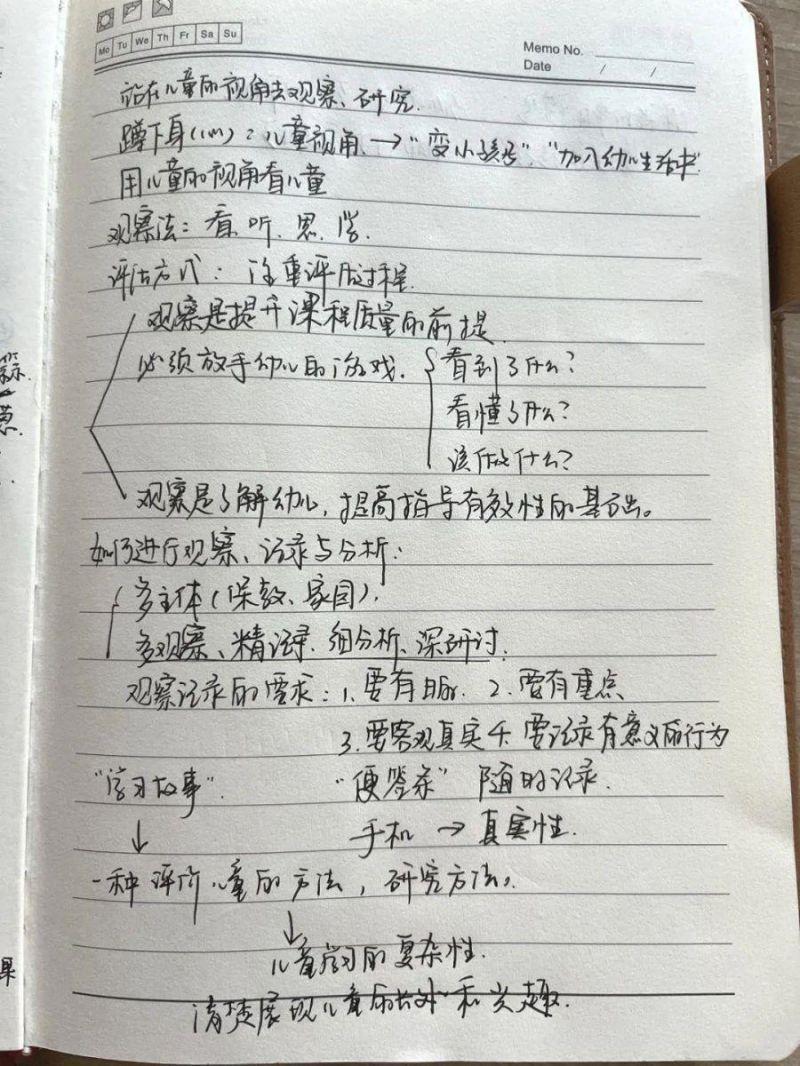 Mo Tu We Th Fr Sa Su
Memo No.
Date / /
站在儿童的视角去观察、研究.
蹲下身(1m)：儿童视角 → "变小孩子"，"加入幼儿生活中"
用儿童的视角看儿童
观察法：看、听、思、学.
评估方式：注重评估过程.
观察是提升课程质量的前提.
必须放手幼儿的游戏. 看到了什么？
看懂了什么？
该做什么？
观察是了解幼儿，提高指导有效性的基础。
如何进行观察、记录与分析：
多主体(保教、家园).
多观察、精记录、细分析、深研讨.
观察记录的要求：1.要有目的. 2.要有重点
3.要客观真实 4.要记录有意义的行为
"学习故事". "便签条" 随时记录.
↓ 手机 → 真实性.
一种评价儿童的方法，研究方法。
↓
儿童学习的复杂性.
清楚展现儿童的长处和兴趣.